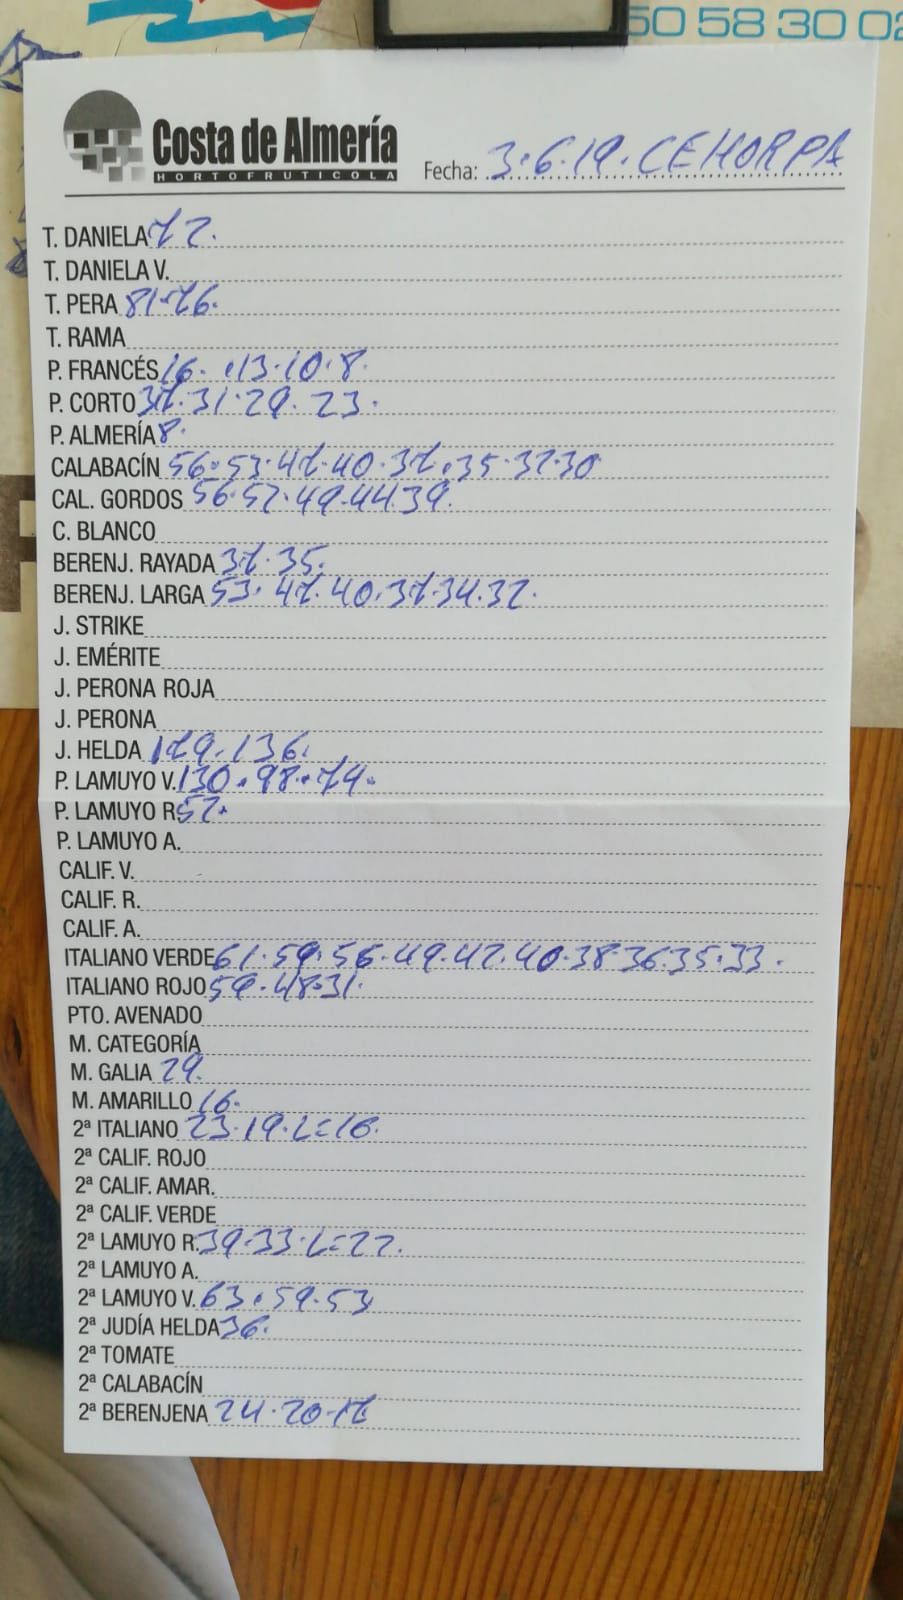 50 58 30 02
Costa de Almería
HORTOFRUTICOLA
Fecha: 3.6.19. CEHORPA
T. DANIELA 72.
T. DANIELA V.
T. PERA 81.76.
T. RAMA
P. FRANCÉS 16. .13.10.8.
P. CORTO 37.31.29.23.
P. ALMERÍA 8.
CALABACÍN 56.53.47.40.37.35.32.30
CAL. GORDOS 56.52.49.44.39.
C. BLANCO
BERENJ. RAYADA 37.35.
BERENJ. LARGA 53.47.40.37.34.32.
J. STRIKE
J. EMÉRITE
J. PERONA ROJA
J. PERONA
J. HELDA 179.136.
P. LAMUYO V. 130.98.74.
P. LAMUYO R. 52.
P. LAMUYO A.
CALIF. V.
CALIF. R.
CALIF. A.
ITALIANO VERDE 61.59.56.49.42.40.38.36.35.33.
ITALIANO ROJO 59.48.31.
PTO. AVENADO
M. CATEGORÍA
M. GALIA 29.
M. AMARILLO 16.
2ª ITALIANO 23.19.L=16.
2ª CALIF. ROJO
2ª CALIF. AMAR.
2ª CALIF. VERDE
2ª LAMUYO R. 39.33.L=22.
2ª LAMUYO A.
2ª LAMUYO V. 63.59.53
2ª JUDÍA HELDA 36.
2ª TOMATE
2ª CALABACÍN
2ª BERENJENA 24.20.17